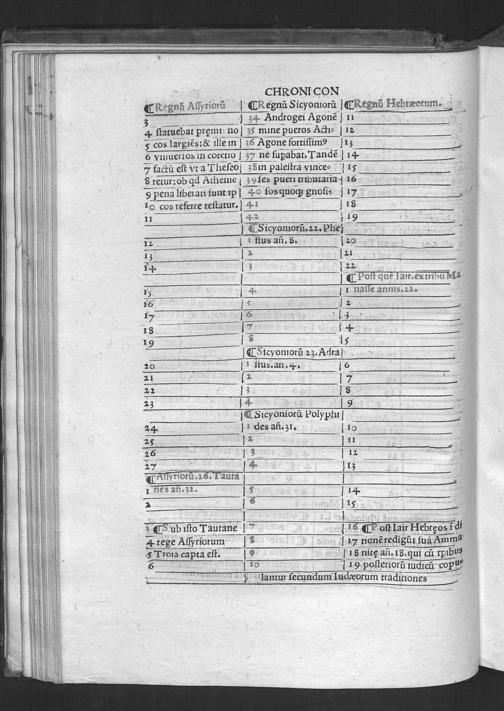 CHRONICON
¶Regnũ Assyriorũ ¶Regnũ Sicyoniorũ ¶Regnũ Hebræorum.
3 34 Androgei Agonẽ 11
4 statuebat premi: no 35 mine pueros Acti- 12
5 cos largiẽs: & ille in 36 Agone fortissim⁹ 13
6 ne supabat. Tandẽ 37 14
7 factũ est vt a Theseo 38 in palestra vince- 15
8 retur: ob qd Atheniẽ 39 ses pueri tributaria 16
9 pena liberati sunt 40 17
10 cos referre testatur. 41 18
11 42 19
¶Sicyoniorũ. 22. Phe
12 1 stus añ. 8. 20
13 2 21
14 3 22
¶Post quẽ Iair. ex tribu Ma
15 4 1 nasse annis. 22.
16 5 2
17 6 3
18 7 4
19 8 5
¶Sicyoniorũ 23. Adra
20 1 stus. an. 4. 6
21 2 7
22 3 8
23 4 9
¶Sicyoniorũ Polyphi
24 1 des añ. 31. 10
25 2 11
26 3 12
27 4 13
¶Assyriorũ. 26. Tauta
1 nes añ. 32. 5 14
2 6 15
3 ¶Sub isto Tautane 7 16 ¶Post Iair Hebręos ĩ di
4 rege Assyriorum 8 17 tionẽ redigũt suã Amma
5 Troia capta est. 9 18 nitę añ. 18. qui cũ tpibus
6 10 19 posteriorũ iudicũ copu-
lantur secundum Iudæorum traditiones